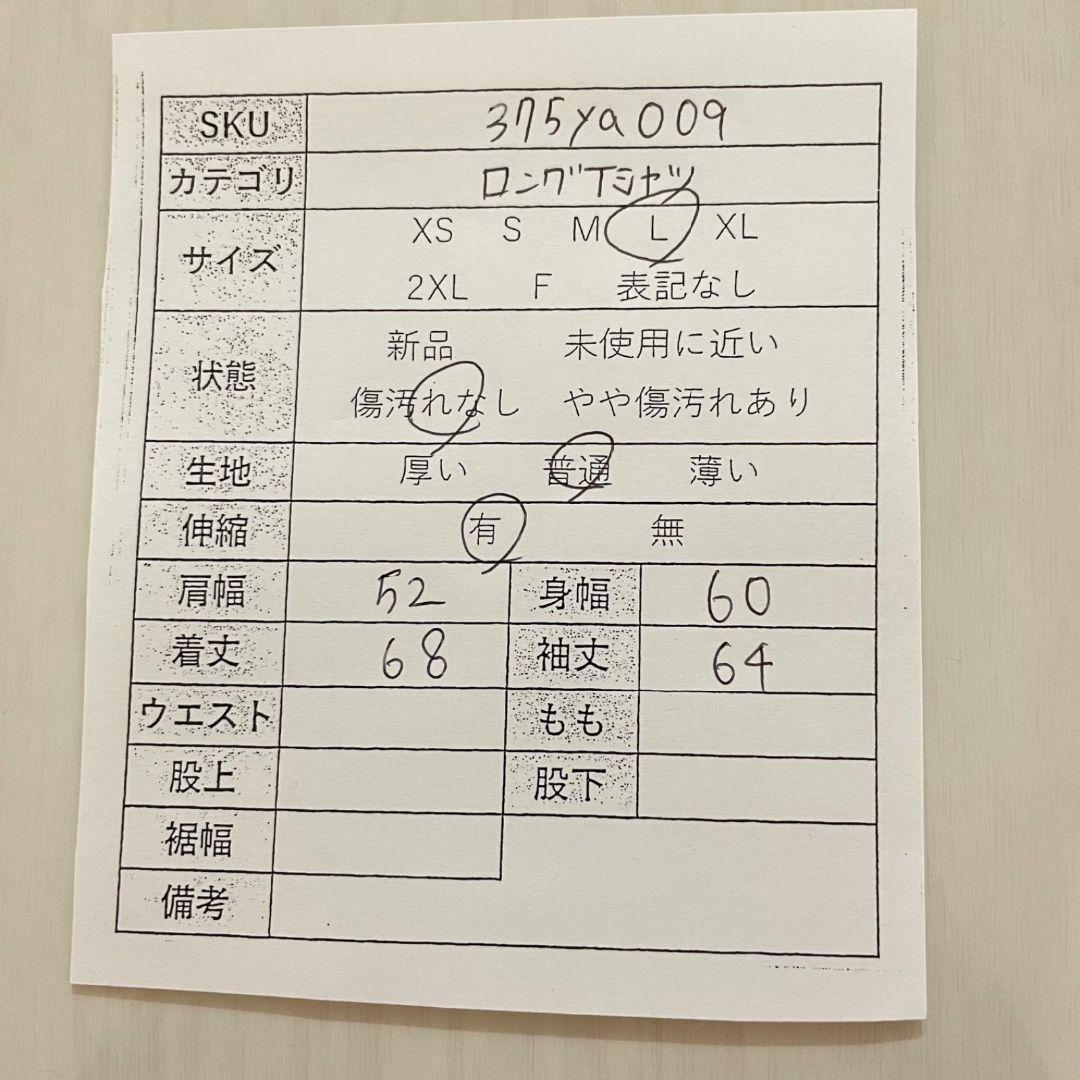 SKU 375ya009
カテゴリ ロングTシャツ
サイズ XS S M L XL
2XL F 表記なし
状態 新品 未使用に近い
傷汚れなし やや傷汚れあり
生地 厚い 普通 薄い
伸縮 有 無
肩幅 52 身幅 60
着丈 68 袖丈 64
ウエスト もも
股上 股下
裾幅
備考